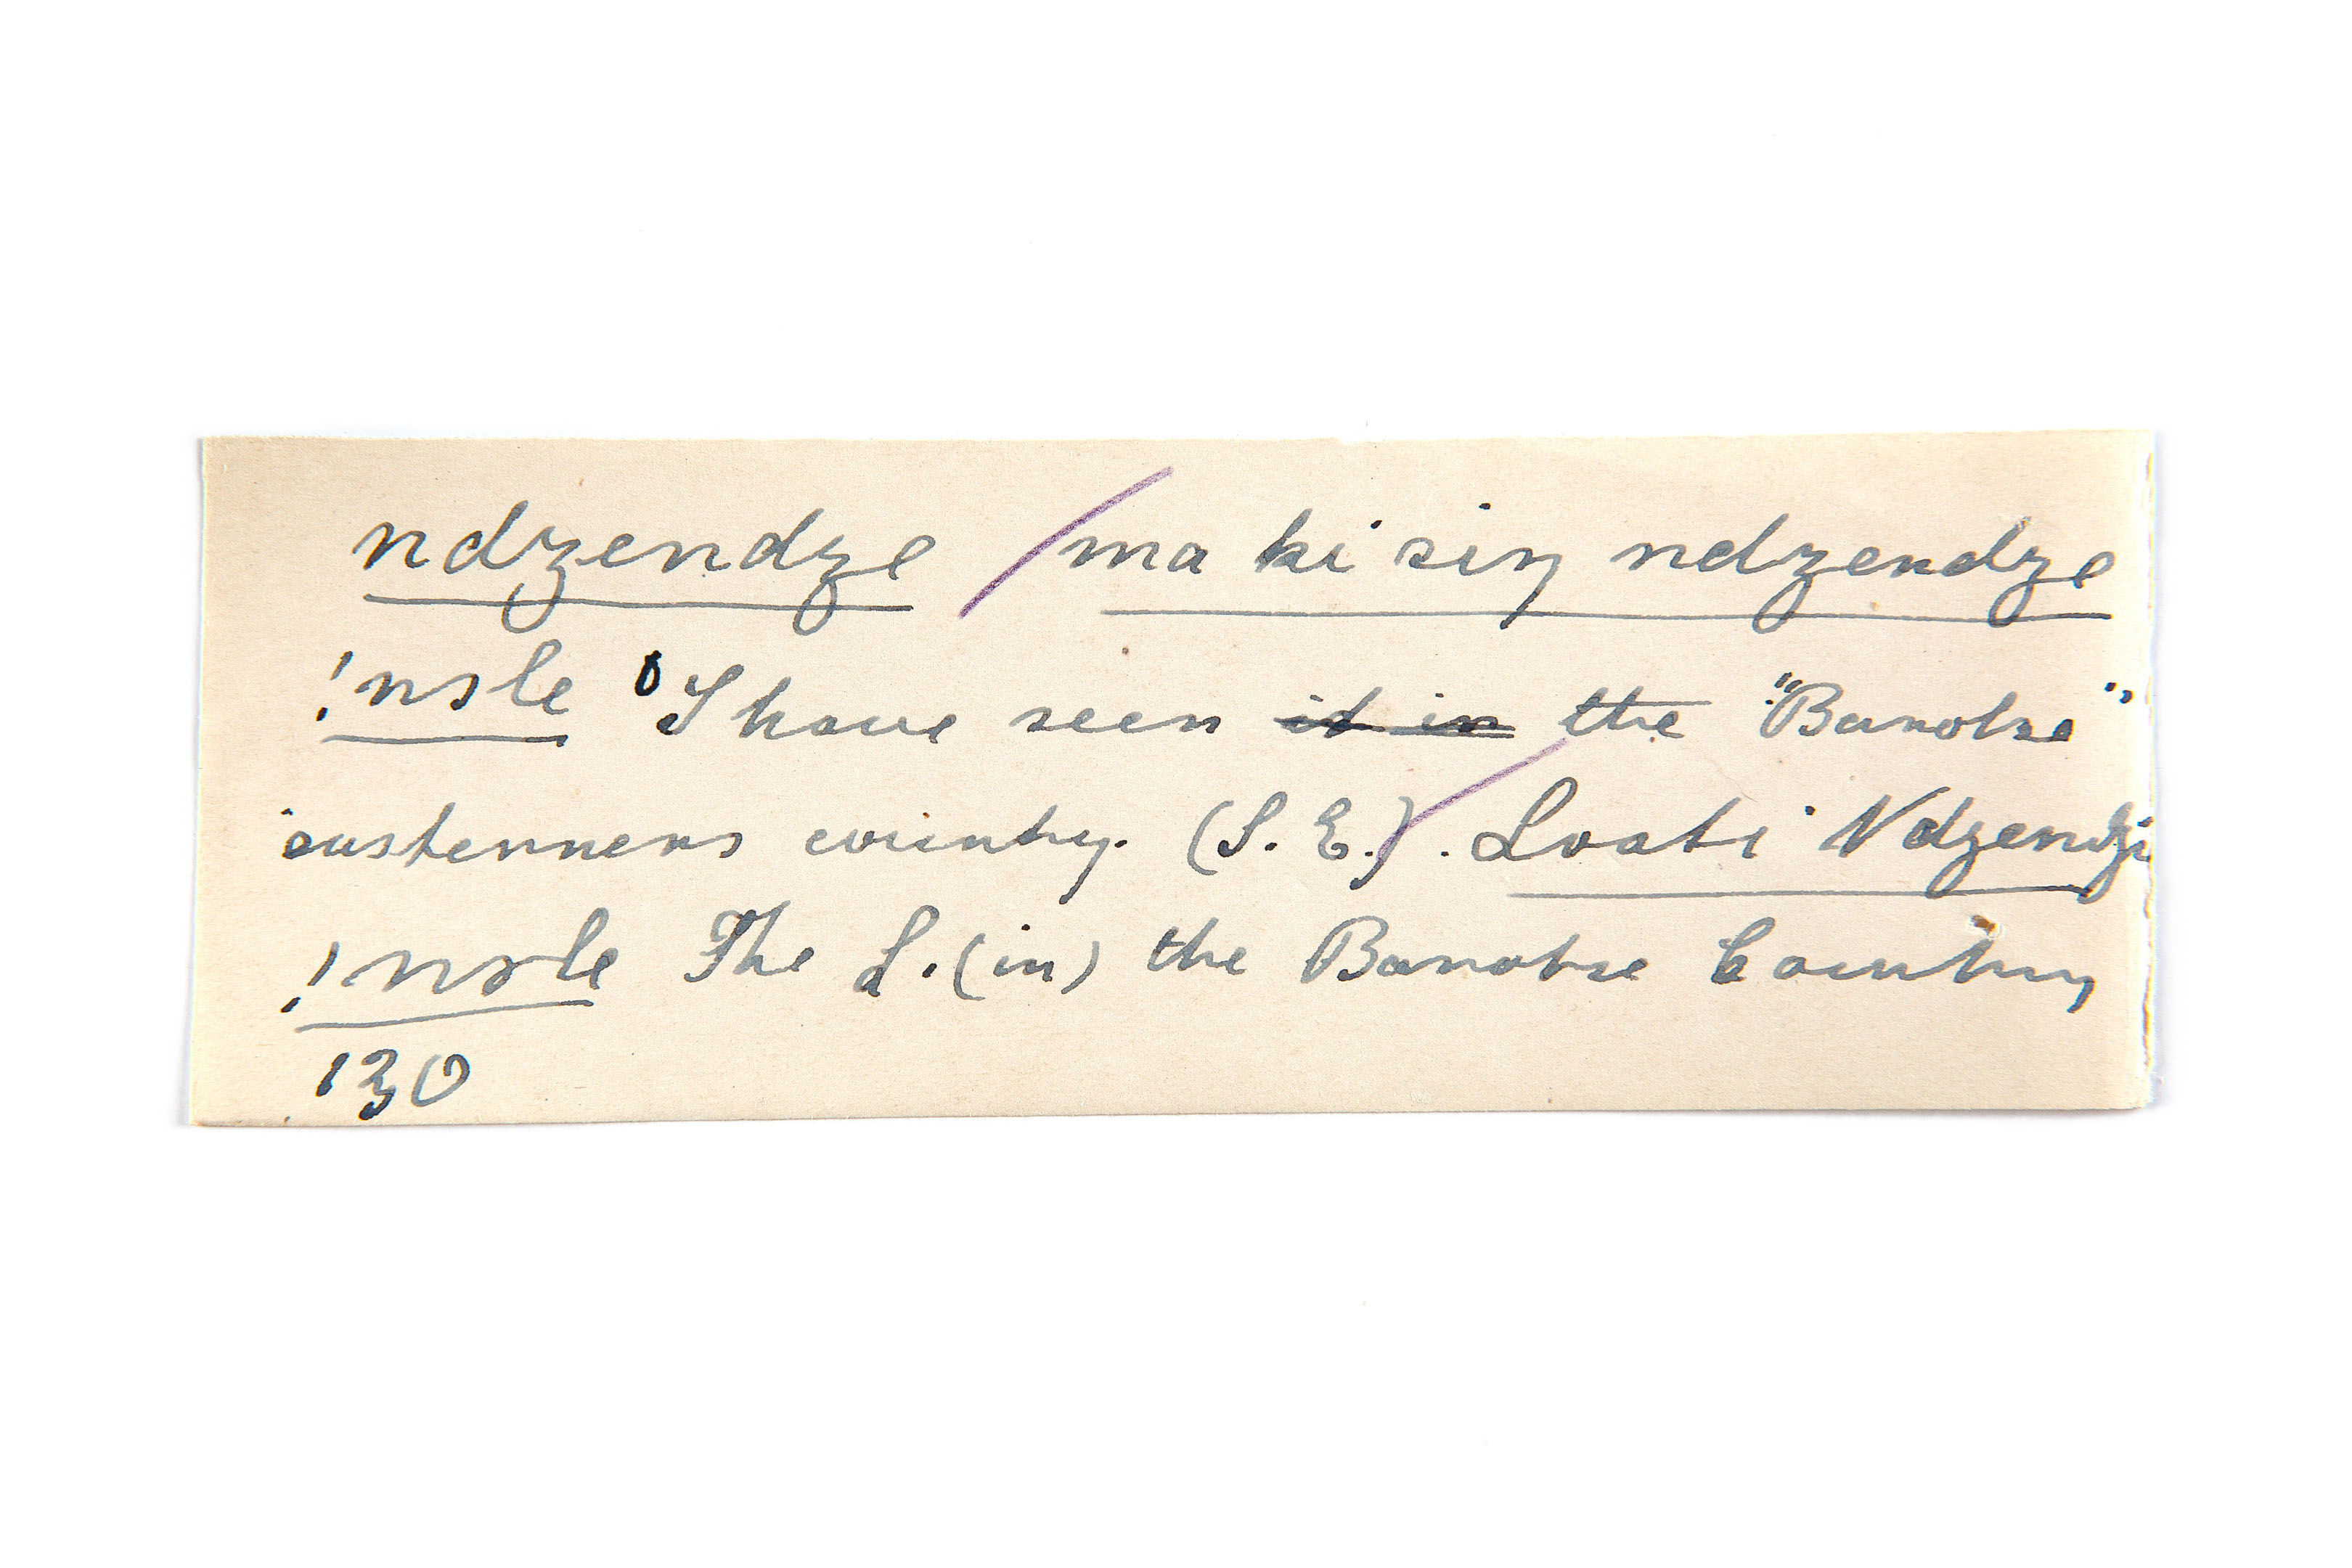 ndzendze / ma ki siŋ ndzendze
!nsle I have seen the "Barotse"
easterners country. (S. E.). Loati Ndzendzi
!nsle The L. (in) the Barotse Country
130